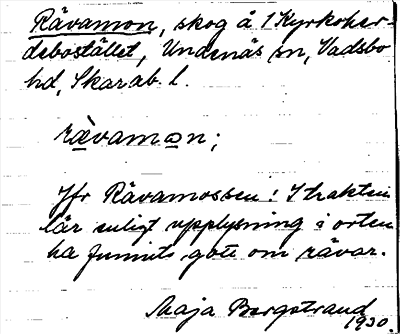 Rävamon, skog å 1 Kyrkoher-
debostället, Undenäs sn, Vadsbo
hd, Skarab. l.
rævamon;
Jfr Rävamossen! I trakten
lär enligt upplysning i orten
ha funnits gott om rävar.
Maja Bergstrand
1930.